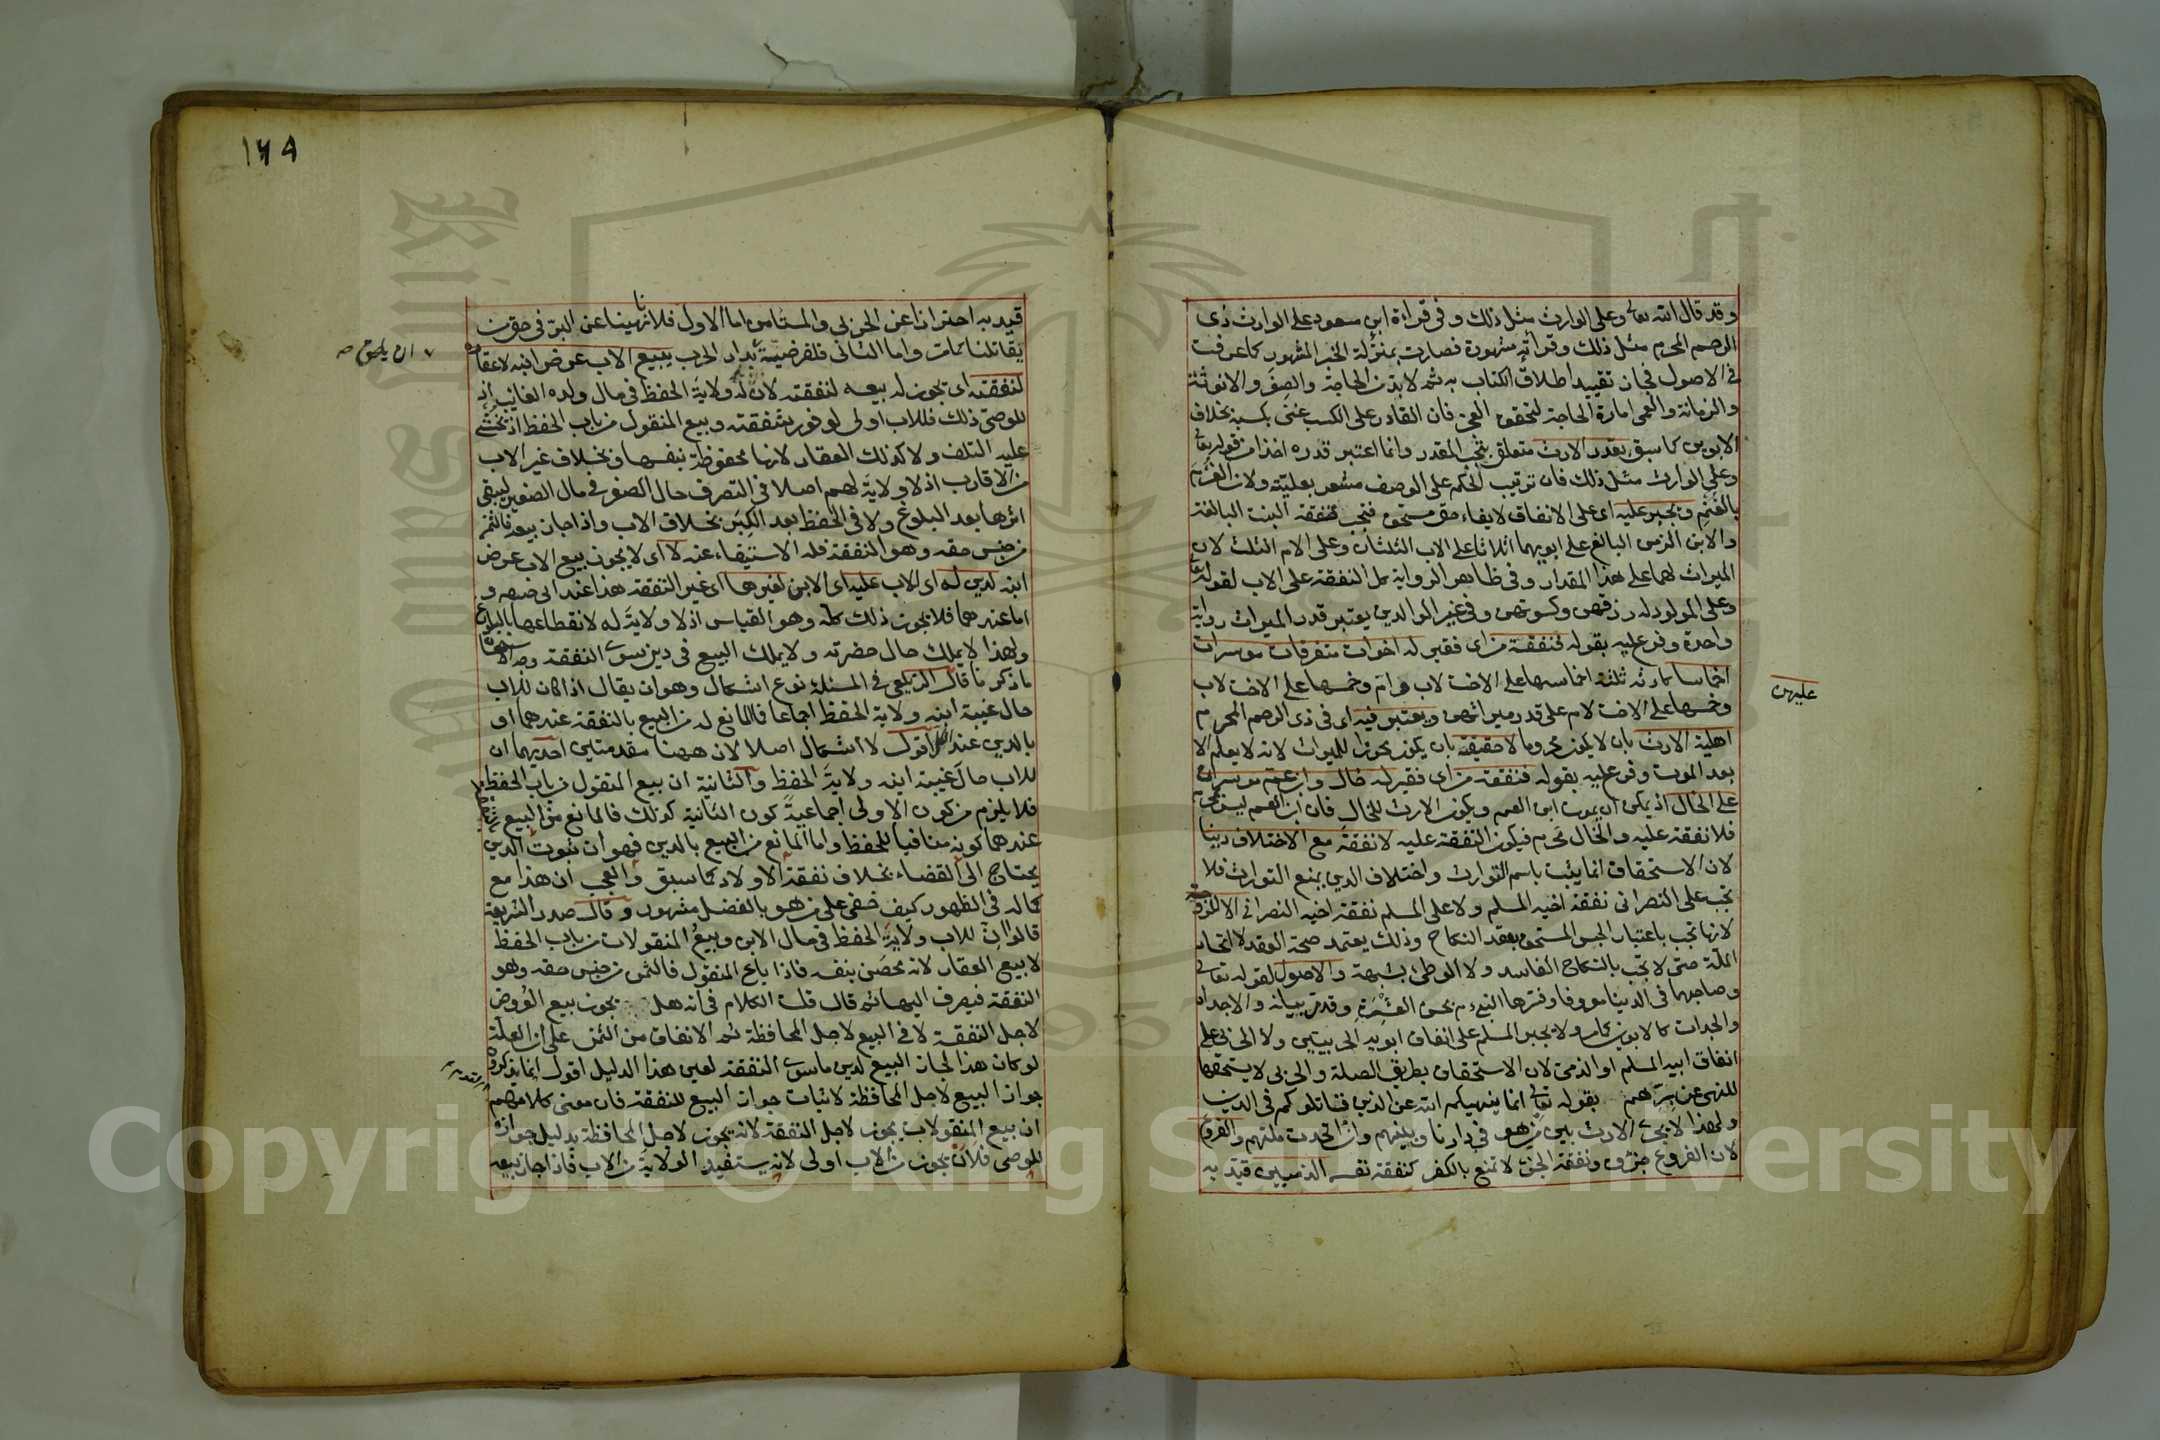 وقد قال الله تعالى وعلى الوارث مثل ذلك وفي قراءة ابن مسعود على الوارث ذي
الرحم المحرم مثل ذلك وقراءته مشهورة فصارت بمنزلة الخبر المشهور كما عرفت
في الاصول فجاز تقييد اطلاق الكتاب به ثم لا بد من الحاجة والصغر والانوثة
والزمانة والعمى امارة الحاجة لتحقق العجز فان القادر على الكسب غني بكسبه بخلاف
الابوين كما سبق بقدر الارث متعلق بتجب المقدر وانما اعتبر قدره اخذا من قوله تعالى
وعلى الوارث مثل ذلك فان ترتيب الحكم على الوصف مشعر بعليته ولان الغرم
بالغنم ويجبر عليه اى على الانفاق لايفاء حق مستحق فتجب نفقة البنت البالغة
والابن الزمن البالغ على ابويهما اثلاثا على الاب الثلثان وعلى الام الثلث لان
الميراث لهما على هذا المقدار وفي ظاهر الرواية كل النفقة على الاب لقوله تعالى
وعلى المولود له رزقهن وكسوتهن وفي غير الوالدين يعتبر قدر الميراث رواية
واحدة وفرع عليه بقوله فنفقة من اى فقير له اخوات متفرقات موسرات
عليهن
اخماسا كارثه ثلثة اخماسها على الاخت لاب وام وخمسها على الاخت لاب
وخمسها على الاخت لام على قدر ميراثهن ويعتبر فيه اى في ذى الرحم المحرم
اهلية الارث بان لا يكون محروما لا حقيقته بان يكون محرزا للميراث لانه لا يعلم الا
بعد الموت وفرع عليه بقوله فنفقة من اى فقير له خال وابن عم موسران
على الخال اذ يمكن ان يموت ابن العم ويكون الارث للخال فان ابن العم ليس بمحرم
فلا نفقة عليه والخال محرم فيكون النفقة عليه لا نفقة مع الاختلاف دينا
لان الاستحقاق انما يثبت باسم التوارث واختلاف الدين يمنع التوارث فلا
تجب على النصراني نفقة اخيه المسلم ولا على المسلم نفقة اخيه النصراني الا للزوجة
لانها تجب باعتبار الحبس المستحق بعقد النكاح وذلك يعتمد صحة العقد لا اتحاد
الملة حتى لا تجب بالنكاح الفاسد ولا الوطئ بشبهة والاصول لقوله تعالى
وصاحبهما في الدنيا معروفا وفسرها النبي عم بحسن العشرة وقد مر بيانه والاجداد
والجدات كالابوين كما مر ولا يجبر المسلم على انفاق ابويه الحربيين ولا الحربي على
انفاق ابيه المسلم او الذمي لان الاستحقاق بطريق الصلة والحربي لا يستحقها
للنهي عن برهم بقوله تعالى انما ينهيكم الله عن الذين قاتلوكم في الدين
ولهذا لا يجرى الارث بين من هو في دارنا وبينهم وان اتحدت ملتهم والفروع
لان الفروع جزؤه ونفقة الجزء لا تمنع بالكفر كنفقة نفسه الذميين قيد به
١٦٩
قيد به احترازا عن الحربي والمستأمن اما الاول فلانا نهينا عن البر في حق من
يقاتلنا كما مر واما الثاني فلفرضية بدار الحرب يبيع الاب عرض ابنه لا عقاره
لنفقته اى تجوز له بيعه لنفقته لان له ولاية الحفظ في مال ولده الغائب اذ
للوصي ذلك فللاب اولى لوفور شفقته وبيع المنقول من باب الحفظ اذ يخشى
عليه التلف ولا كذلك العقار لانها محفوظة بنفسها وبخلاف غير الاب
من الاقارب اذ لا ولاية لهم اصلا في التصرف حال الصغر في مال الصغير ليبقى
اثرها بعد البلوغ ولا في الحفظ بعد الكبر بخلاف الاب واذا جاز بيعه فالثمن
من جنس حقه وهو النفقة فله الاستيفاء عنه لا اى لا يجوز بيع الاب عرض
ابنه لدين له اى الاب عليه اى الابن لغيرها اى غير النفقة هذا عند ابى حنيفه و
اما عندهما فلا يجوز ذلك كله وهو القياس اذ لا ولاية له لانقطاعها بالبلوغ
ولهذا لا يملك حال حضرته ولا يملك البيع في دين سوى النفقة وجه الاستحسان
ما ذكرنا قال الزيلعي في المسئلة نوع اشكال وهو ان يقال اذا كان للاب
حال غيبة ابنه ولاية الحفظ اجماعا فما المانع له من البيع بالنفقة عندهما او
بالدين عند الكل اقول لا اشكال اصلا لان ههنا مقدمتين احديهما ان
للاب حال غيبة ابنه ولاية الحفظ والثانية ان بيع المنقول من باب الحفظ
فلا يلزم من كون الاولى اجماعية كون الثانية كذلك فالمانع من البيع
عندهما كونه منافيا للحفظ واما المانع من البيع بالدين فهو ان ثبوت الدين
يحتاج الى القضاء بخلاف نفقة الاولاد كما سبق والعجب ان هذا مع
كماله في الظهور كيف خفى على من هو بالفضل مشهور وقال صدر الشريعة
قالوا ان للاب ولاية الحفظ في مال الابن وبيع المنقولات من باب الحفظ
لا بيع العقار لانه محصن بنفسه فاذا باع المنقول فالثمن من جنس حقه وهو
النفقة فيصرف اليها ثم قال قلت الكلام في انه هل يجوز بيع العروض
لاجل النفقة لا في البيع لاجل المحافظة ثم الانفاق من الثمن على ان العلة
لو كان هذا لجاز البيع لدين ما سوى النفقة لعين هذا الدليل اقول انما يذكروه
جواز البيع لاجل المحافظة لاثبات جواز البيع للنفقة فان معنى كلامهم
ان بيع المنقولات يجوز لاجل النفقة لانه يجوز لاجل المحافظة بدليل جوازه
للوصي فلان يجوز من الاب اولى لانه يستفيد الولاية من الاب فاذا جاز بيعه
Copyright © King Saud University